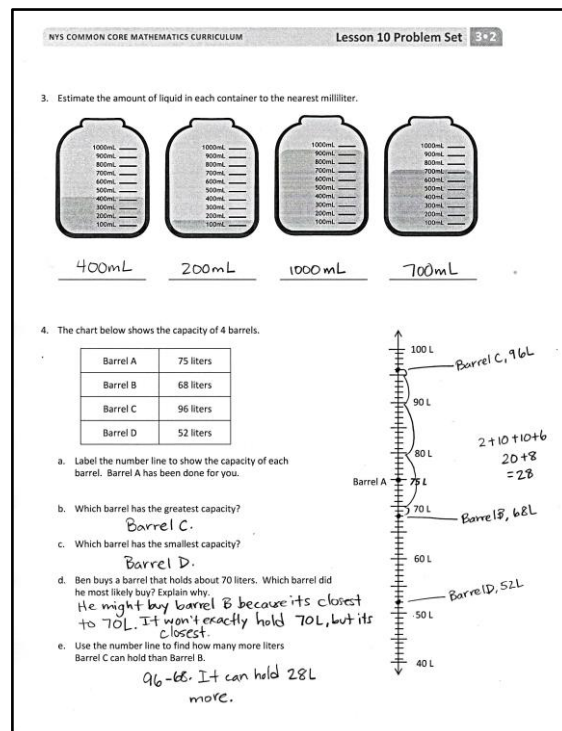 NYS COMMON CORE MATHEMATICS CURRICULUM Lesson 10 Problem Set 3•2
3. Estimate the amount of liquid in each container to the nearest milliliter.
1000mL 1000mL 1000mL 1000mL
900mL 900mL 900mL 900mL
800mL 800mL 800mL 800mL
700mL 700mL 700mL 700mL
600mL 600mL 600mL 600mL
500mL 500mL 500mL 500mL
400mL 400mL 400mL 400mL
300mL 300mL 300mL 300mL
200mL 200mL 200mL 200mL
100mL 100mL 100mL 100mL
400mL 200mL 1000mL 700mL
4. The chart below shows the capacity of 4 barrels.
Barrel A 75 liters
Barrel B 68 liters
Barrel C 96 liters
Barrel D 52 liters
a. Label the number line to show the capacity of each
barrel. Barrel A has been done for you.
b. Which barrel has the greatest capacity?
Barrel C.
c. Which barrel has the smallest capacity?
Barrel D.
d. Ben buys a barrel that holds about 70 liters. Which barrel did
he most likely buy? Explain why.
He might buy barrel B because its closest
to 70L. It won't exactly hold 70L, but its
closest.
e. Use the number line to find how many more liters
Barrel C can hold than Barrel B.
96-68. It can hold 28L
more.
100 L
Barrel C, 96L
90 L
2+10+10+6
20+8
=28
80 L
Barrel A 75 L
70 L
Barrel B, 68L
60 L
Barrel D, 52L
50 L
40 L